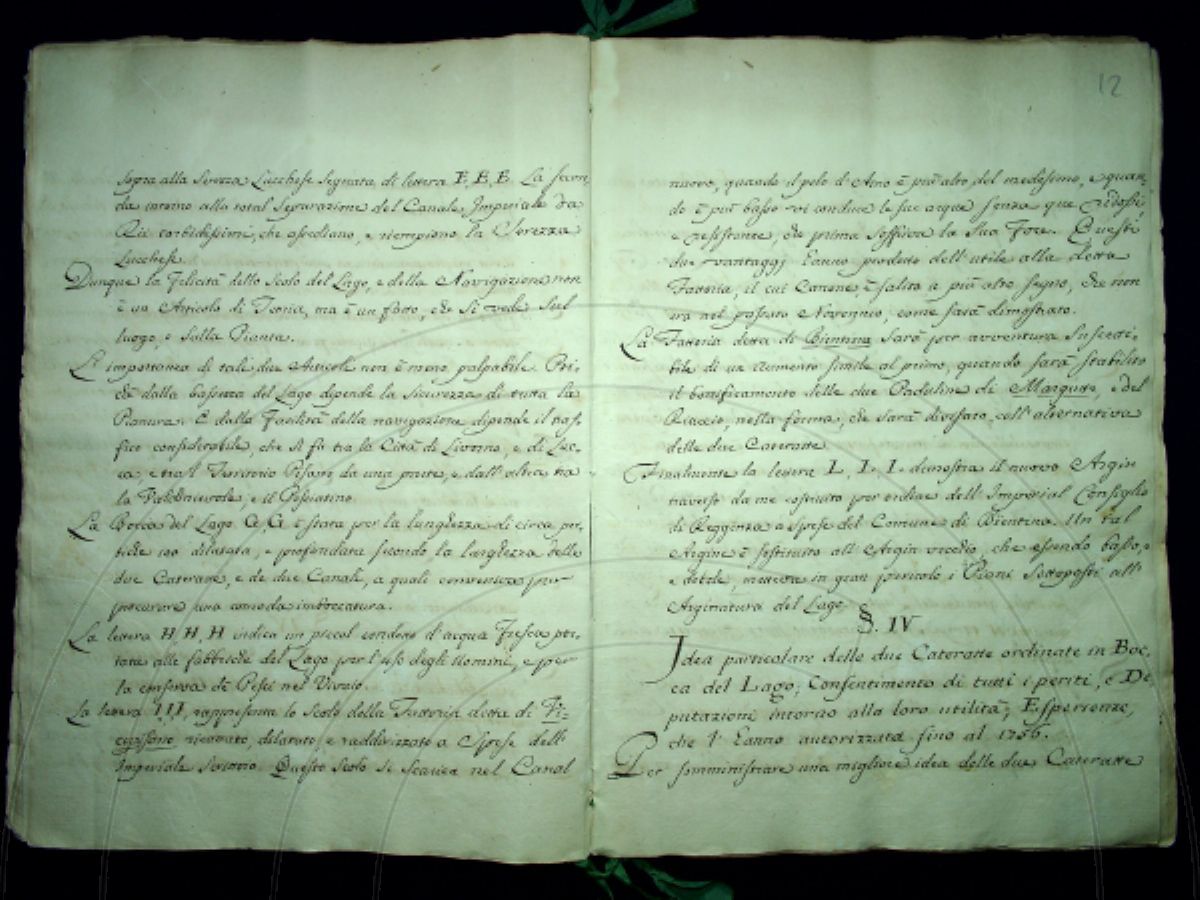 sopra alla Serezza Lucchese segnata di lettera E, E, E. La secon-
da intorno alla total Separazione del Canale Imperiale da
Rii torbidissimi, che assediano, e riempiono la Serezza
Lucchese.
Dunque la Felicità dello Scolo del Lago, e della Navigazione non
è un Articolo di Teoria, ma è un fatto, che si vede sul
luogo, e sulla Pianta.
L'importanza di tali due Articoli non è meno palpabile. Poi-
chè dalla bassezza del Lago dipende la sicurezza di tutta la
Pianura. E dalla Facilità della navigazione dipende il traf-
fico considerabile, che si fa tra la Città di Livorno, e di Luc-
ca, e tra'l Territorio Pisano da una parte, e dall'altra tra
la Valdinievole, e il Pesciatino.
La Bocca del Lago G, G, è stata per la lunghezza di circa per-
tiche 100 dilatata, e profondata secondo la larghezza delle
due Cateratte, e de due Canali, a quali conveniva per
procurare una comoda imboccatura.
La lettera H, H, H indica un piccol condotto d'acqua Fresca por-
tata alle fabbriche del Lago per l'uso degli Uomini, e per
la conserva de Pesci nel Vivaio.
La lettera I I I, rappresenta lo Scolo della Fattoria detta di Vi-
copisano ricavato, dilatato, e raddirizzato a Spese dell'
Imperiale Scrittoio. Questo Scolo si Scarica nel Canal
12
nuovo, quando il pelo d'Arno è più alto del medesimo, e quan-
do è più basso vi conduce le sue acque senza que' ridossi
e resistenze, che prima soffriva la Sua Foce. Questi
due vantaggj hanno prodotto dell'utile alla detta
Fattoria, il cui Canone è salito a più alto segno, che non
era nel passato Novennio, come sarà dimostrato.
La Fattoria detta di Bientina sarà per avventura suscetti-
bile di un Aumento simile al primo, quando sarà stabilito
il bonificamento delle due Paduline di e del
nella forma, che sarà divisato, coll'alternativa
delle due Cateratte.
Finalmente la lettera L. L. L. dimostra il nuovo Argin
traverso da me costruito per ordine dell'Imperial Consiglio
di Reggenza a Spese del Comune di Bientina. Un tal
Argine è sostituito all'Argin vecchio, che essendo basso, e
debile, metteva in gran pericolo i Piani Sottoposti all'
Arginatura del Lago.
§. IV
Idea particolare delle due Cateratte ordinate in Boc-
ca del Lago; Consentimento di tutti i periti, e De-
putazioni intorno alla loro utilità; Esperienze,
che l'hanno autorizzata fino al 1756.
Per somministrare una migliore idea delle due Cateratte